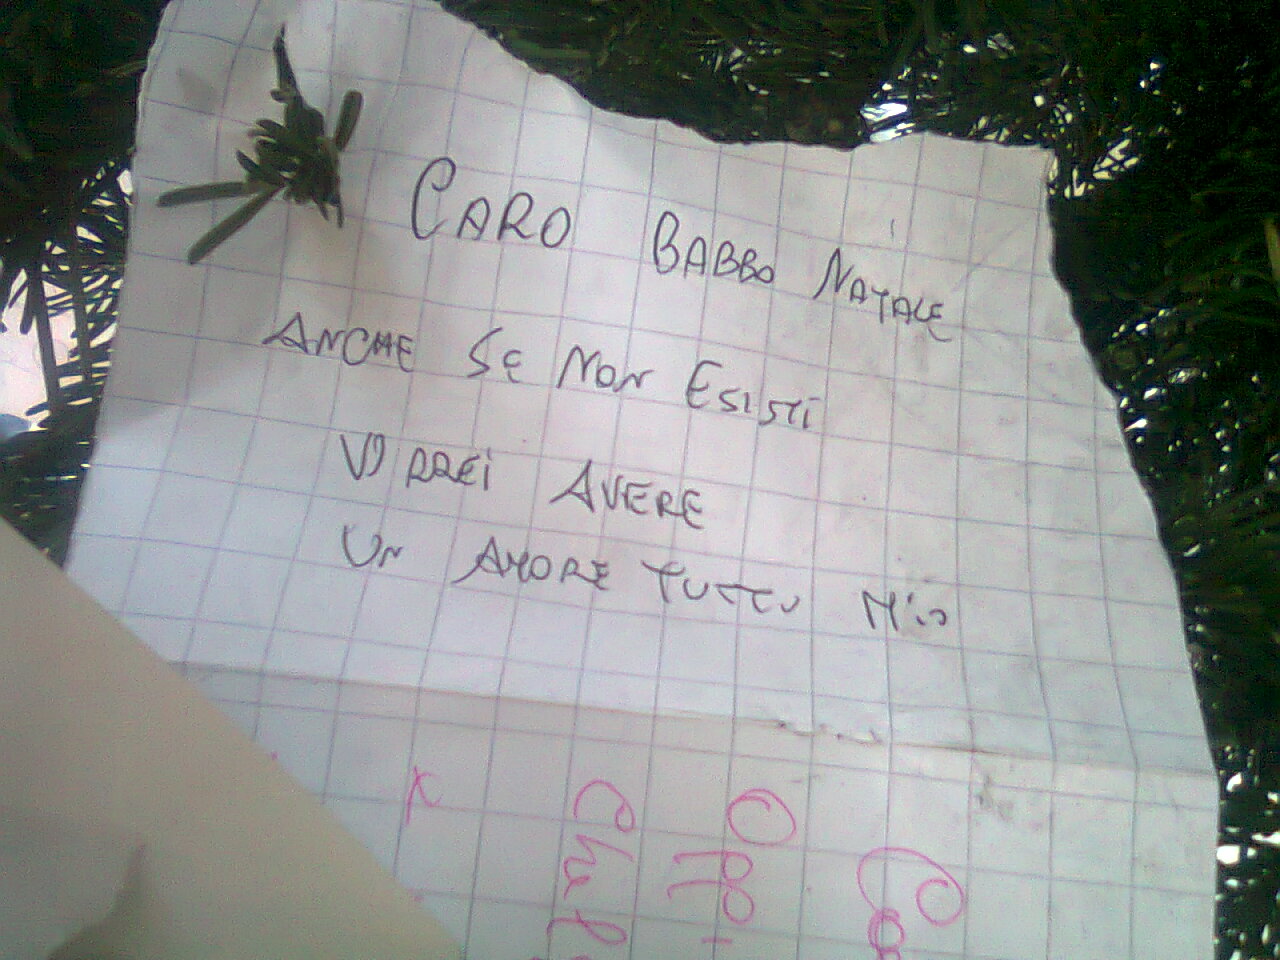 CARO BABBO NATALE
ANCHE SE NON ESISTI
VORREI AVERE
UN AMORE TUTTO MIO